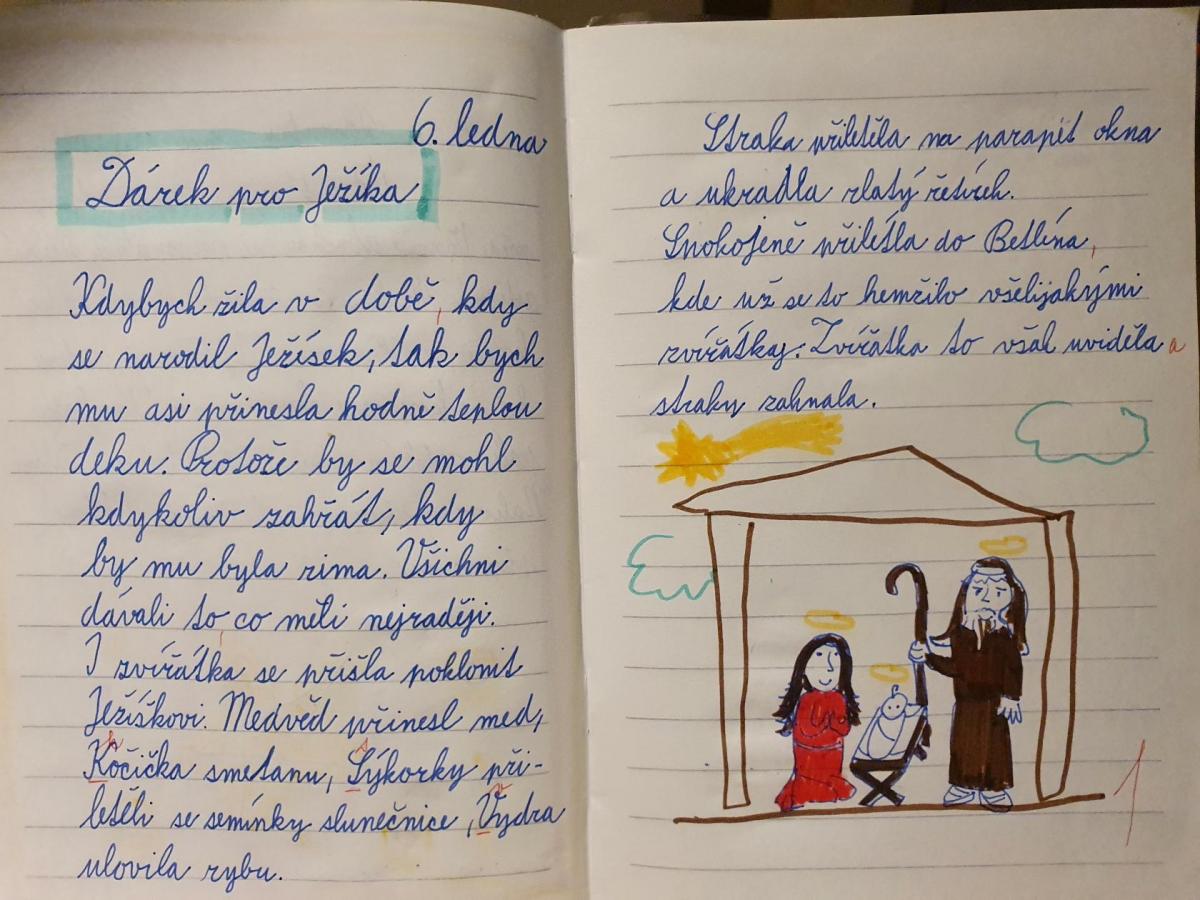 6. ledna
Dárek pro Ježíka
Kdybych žila v době, kdy
se narodil Ježísek, tak bych
mu asi přinesla hodně teplou
deku. Protože by se mohl
kdykoliv zahřát, kdy
by mu byla zima. Všichni
dávali to, co měli nejraději.
I zvířátka se přišla poklonit
Ježíškovi. Medvěd přinesl med,
Kočička smetanu, Sýkorky při-
letěli se semínky slunečnice, Vydra
ulovila rybu.
Straka přiletěla na parapet okna
a ukradla zlatý řetízek.
Spokojeně přilétla do Betléma,
kde už se to hemžilo všelijakými
zvířátky. Zvířátka to však uviděla a
straky zahnala.
1